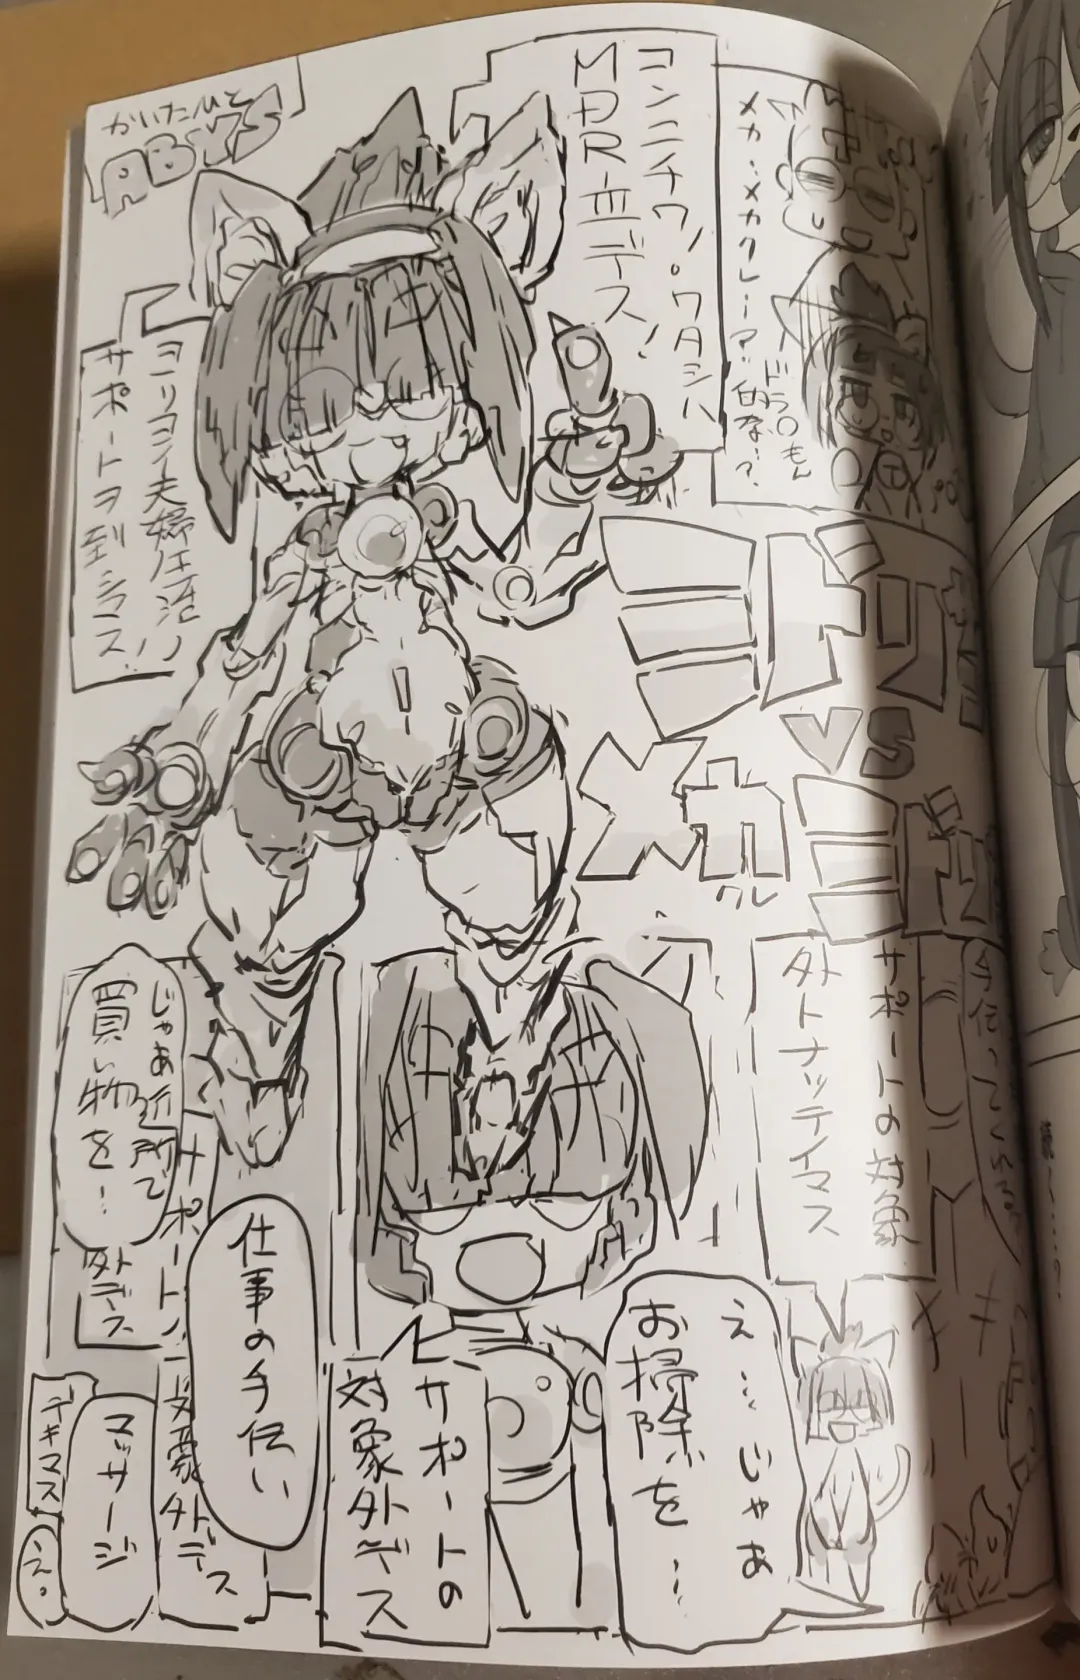 かいたひと
ABYS
メカ…メカクレ…?
ドラ○もん
的な…?
コンニチワ。ワタシハ
MDR-Ⅲデス!
ヨリヨイ夫婦生活ノ
サポートヲ
シマス
ニドリ
VS
メカ
クル
ニドリ
手伝って
サポートの対象
外トナッテイマス
え…じゃあ
お掃除を…
サポートの
対象外デス
仕事の手伝い
対象外デス
じゃあ近所で
買い物を…
サポートノ
外デス
マッサージ
デキマス
え。